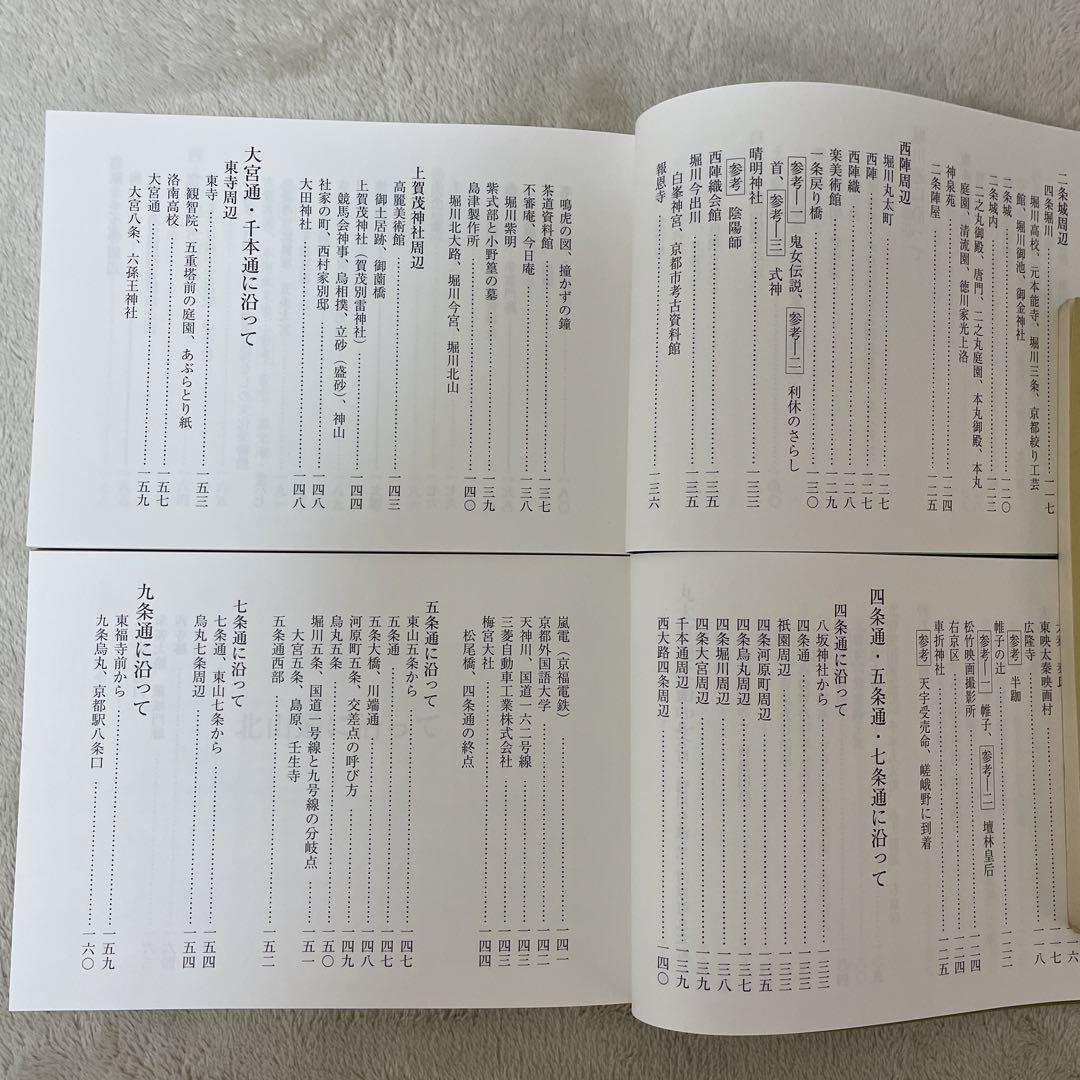 二条城周辺
四条堀川
堀川高校、元本能寺、堀川三条、京都絞り工芸
館、堀川御池、御金神社 一一七
二条城 一二〇
二条城内 一二二
二之丸御殿、唐門、二之丸庭園、本丸御殿、本丸
庭園、清流園、徳川家光上洛
神泉苑 一二四
二条陣屋 一二五
西陣周辺
堀川丸太町 一二七
西陣 一二七
西陣織 一二八
楽美術館 一二九
一条戻り橋 一三〇
参考—一 鬼女伝説、参考—二 利休のさらし
首、参考—三 式神
晴明神社 一三三
参考 陰陽師
西陣織会館 一三五
堀川今出川 一三五
白峯神宮、京都市考古資料館
報恩寺 一三六
鳴虎の図、撞かずの鐘
茶道資料館 一三七
不審庵、今日庵 一三八
堀川紫明
紫式部と小野篁の墓 一三九
島津製作所 一四〇
堀川北大路、堀川今宮、堀川北山
上賀茂神社周辺
高麗美術館 一四三
御土居跡、御薗橋
上賀茂神社(賀茂別雷神社) 一四四
競馬会神事、烏相撲、立砂(盛砂)、神山
社家の町、西村家別邸 一四八
大田神社 一四八
大宮通・千本通に沿って
東寺周辺
東寺 一五三
観智院、五重塔前の庭園、あぶらとり紙
洛南高校 一五七
大宮通 一五九
大宮八条、六孫王神社
東映太秦映画村 一一七
広隆寺 一一八
参考 半跏
帷子の辻 一二二
参考—一 帷子、参考—二 壇林皇后
松竹映画撮影所 一二四
右京区 一二四
車折神社 一二五
参考 天宇受売命、嵯峨野に到着
四条通・五条通・七条通に沿って
四条通に沿って
八坂神社から 一三三
四条通 一三三
祇園周辺 一三三
四条河原町周辺 一三五
四条烏丸周辺 一三七
四条堀川周辺 一三八
四条大宮周辺 一三九
千本通周辺 一三九
西大路四条周辺 一四〇
嵐電(京福電鉄) 一四一
京都外国語大学 一四二
天神川、国道一六二号線 一四三
三菱自動車工業株式会社 一四四
梅宮大社 一四四
松尾橋、四条通の終点
五条通に沿って
東山五条から 一四七
五条通 一四七
五条大橋、川端通 一四八
河原町五条、交差点の呼び方 一四九
烏丸五条 一五〇
堀川五条、国道一号線と九号線の分岐点 一五一
大宮五条、島原、壬生寺
五条通西部 一五二
七条通に沿って
七条通、東山七条から 一五四
烏丸七条周辺 一五四
九条通に沿って
東福寺前から 一五九
九条烏丸、京都駅八条口 一六〇